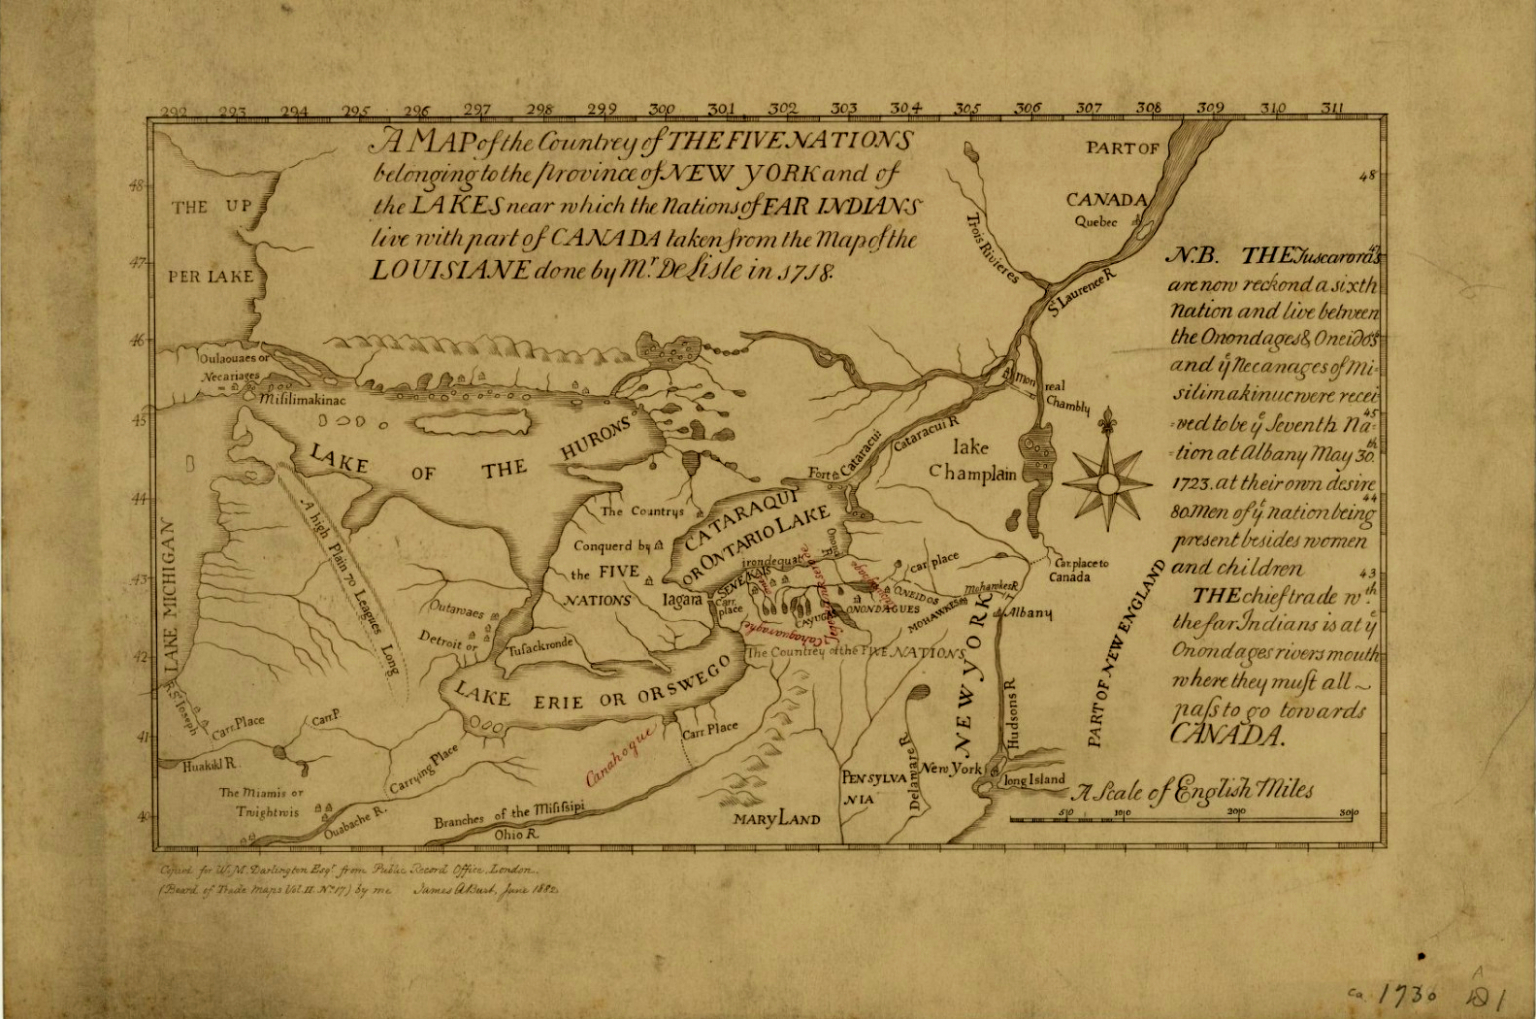 292 293 294 295 296 297 298 299 300 301 302 303 304 305 306 307 308 309 310 311
A MAP of the Countrey of THE FIVE NATIONS
belonging to the province of NEW YORK and of
the LAKES near which the Nations of FAR INDIANS
live with part of CANADA taken from the Map of the
LOUISIANE done by Mr. De Lisle in 1718.
PART OF
CANADA
Quebec
Trois Rivieres
St Laurence R.
48
47
46
45
44
43
42
41
40
THE UP
PER LAKE
Oulaouaes or
Necariages
Misilimakinac
LAKE OF THE HURONS
LAKE MICHIGAN
A high Plain 70 Leagues Long
Mon real
Chambly
lake
Champlain
Cataracui R
Fort Cataracui
CATARAQUI
OR ONTARIO LAKE
The Countrys
Conquerd by
the FIVE
NATIONS
Iagara
Carr.
place
irondequat
SENEKAS
CAYUGAS
ONONDAGUES
ONEIDOS
MOHAWKES
Mohawkes R
car place
Car place to
Canada
Albany
Outawaes
Detroit or
Tusackronde
The Countrey of the FIVE NATIONS
LAKE ERIE OR ORSWEGO
R St Joseph
Carr. Place
Carr. P.
Huakiki R.
Carrying Place
Carr Place
Canahogue
Cahaquaraghe
The Miamis or
Twightwis
Ouabache R.
Branches of the Misisipi
Ohio R.
MARYLAND
PENSYLVA
NIA
Delaware R.
New York
NEW YORK
Hudsons R
long Island
PART OF NEW ENGLAND
48
47
45
44
43
N.B. THE Tuscaroras
are now reckond a sixth
Nation and live between
the Onondages & Oneidos
and ye Necanages of Mi-
silimakinuc were recei
=ved to be ye Seventh Na=
=tion at Albany May 30th
1723. at their own desire
80 Men of ye nation being
present besides women
and children
THE chief trade wth.
the far Indians is at ye
Onondages rivers mouth
where they must all ~
pass to go towards
CANADA.
A Scale of English Miles
50 100 200 300
Copied for W. M. Darlington Esqr. from Public Record Office, London.
(Board of Trade Maps Vol. II. No. 17) by me James A Burt, June 1882.
ca 1730